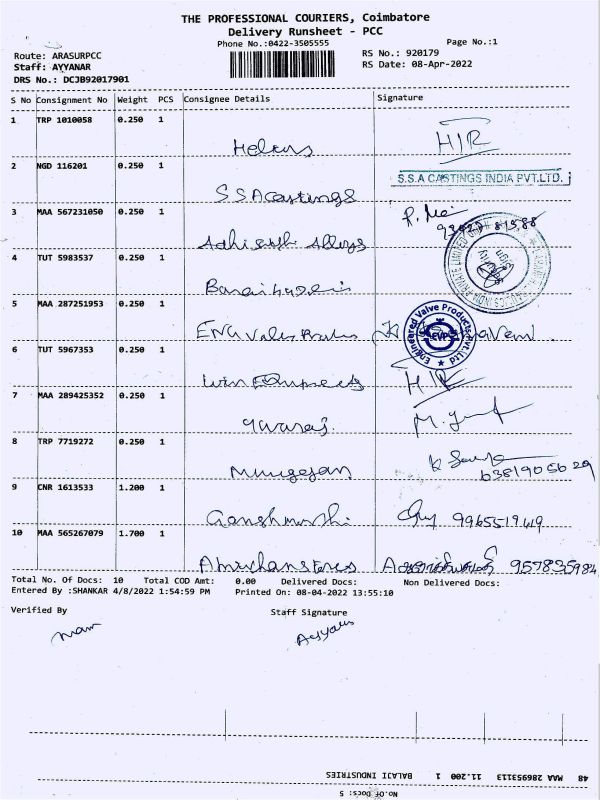 THE PROFESSIONAL COURIERS, Coimbatore
Delivery Runsheet - PCC
Phone No.:0422-3505555 Page No.:1
Route: ARASURPCC RS No.: 920179
Staff: AYYANAR RS Date: 08-Apr-2022
DRS No.: DCJB92017901
S No Consignment No Weight PCS Consignee Details Signature
1 TRP 1010058 0.250 1
HIR
2 NGD 116201 0.250 1
S.S.A CASTINGS INDIA PVT.LTD.
SSACastings
3 MAA 567231050 0.250 1
Adhisath Alloys
4 TUT 5983537 0.250 1
5 MAA 287251953 0.250 1
Engineered Valve Products Pvt. Ltd
EVP
6 TUT 5967353 0.250 1
HIR
7 MAA 289425352 0.250 1
Yuvaraj
8 TRP 7719272 0.250 1
Murugesan 6381905629
9 CNR 1613533 1.200 1
9965519419
10 MAA 565267079 1.700 1
957835984
Total No. Of Docs: 10 Total COD Amt: 0.00 Delivered Docs: Non Delivered Docs:
Entered By :SHANKAR 4/8/2022 1:54:59 PM Printed On: 08-04-2022 13:55:10
Verified By Staff Signature
48 MAA 286953113 1 11.200 BALAJI INDUSTRIES
No.Of Docs: 5